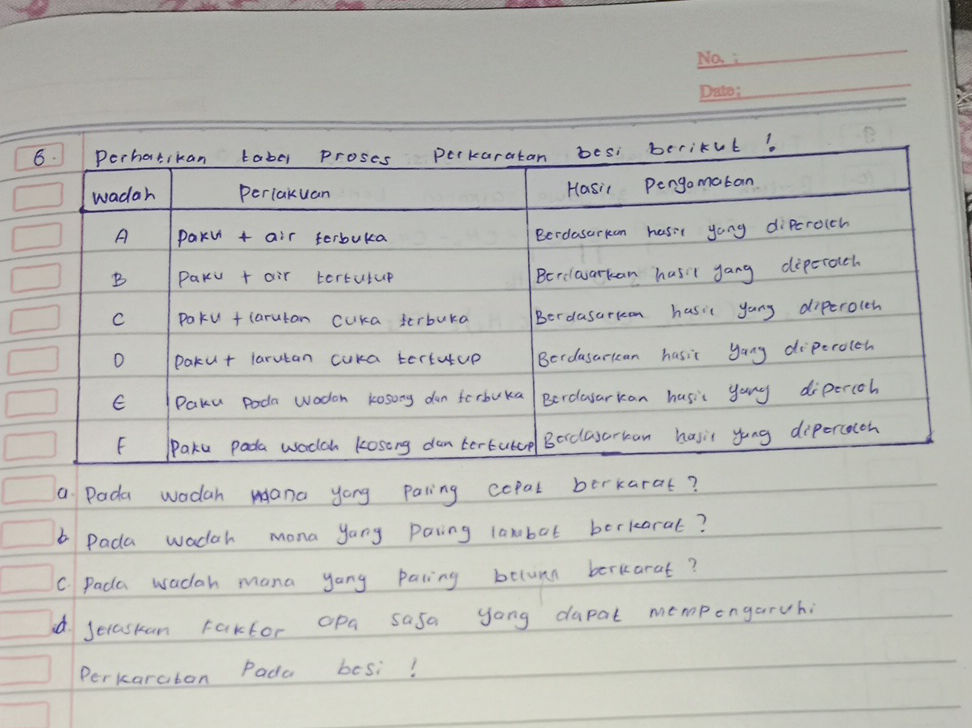 No. :
Date:
6. Perhatikan tabel proses perkaratan besi berikut !
Wadah Perlakuan Hasil Pengamatan
A Paku + air terbuka Berdasarkan hasil yang diperoleh
B Paku + air tertutup Berdasarkan hasil yang diperoleh
C Paku + larutan cuka terbuka Berdasarkan hasil yang diperoleh
D Paku + larutan cuka tertutup Berdasarkan hasil yang diperoleh
E Paku pada wadah kosong dan terbuka Berdasarkan hasil yang diperoeh
F Paku pada wadah kosong dan tertutup Berdasarkan hasil yang diperoleh
a. Pada wadah mana yang paling cepat berkarat?
b Pada wadah mana yang paling lambat berkarat?
c Pada wadah mana yang paling belum berkarat?
d. Jelaskan faktor apa saja yang dapat mempengaruhi
Perkaratan Pada besi !